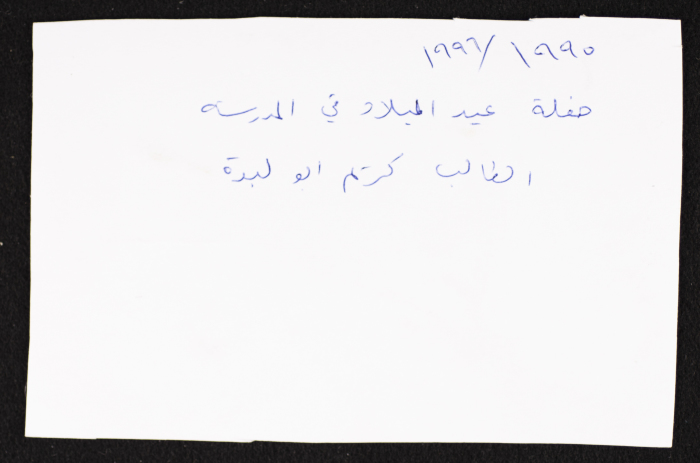 ١٩٩٥/١٩٩٦
حفلة عيد الميلاد في المدرسه
الطالب كريم ابو لبدة